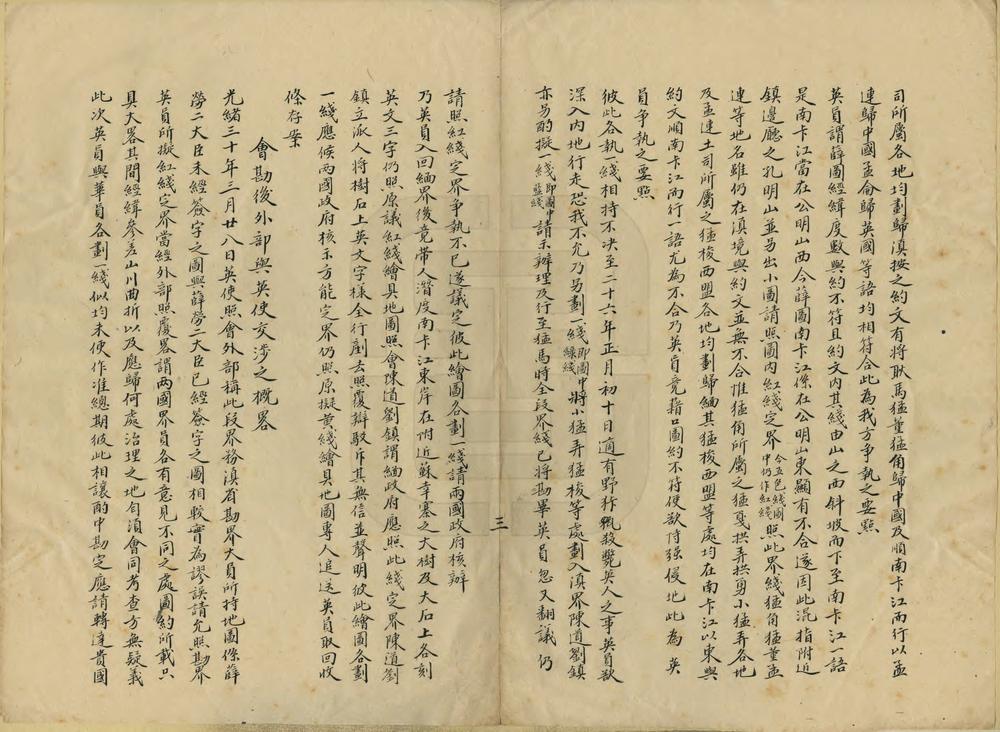 司所屬各地均劃歸滇按之約文有將耿馬猛董猛角歸中國及順南卡江而行以孟
連歸中國孟侖歸英國等語均相符合此為我方爭執之要點
英員謂薛圖經緯度數與約不符且約文內其綫由山之西斜坡而下至南卡江一語
是南卡江當在公明山西今薛圖南卡江係在公明山東顯有不合遂因此混指附近
鎮邊廳之孔明山並另出小圖請照圖內紅綫定界今五色綫圖中仍作紅綫照此界綫猛角猛董孟
連等地名雖仍在滇境與約文並無不合惟猛角所屬之猛戛拱弄拱勇小猛弄各地
及孟連土司所屬之猛梭西盟各地均劃歸緬其猛梭西盟等處均在南卡江以東與
約文順南卡江而行一語尤為不合乃英員竟藉口圖約不符便欲恃强侵地此為英
員爭執之要照
彼此各執一綫相持不决至二十六年正月初十日適有野狢戕殺斃英人之事英員欲
深入內地行走恐我不允乃另劃一綫即圖中綠綫將小猛弄猛梭等處劃入滇界陳道劉鎮
亦另酌擬一綫即圖中藍綫請示辦理及行至猛馬時全段界綫已將勘畢英員忽又翻議仍
三
請照紅綫定界爭執不已遂議定彼此繪圖各劃一綫請兩國政府核辦
乃英員入回緬界後竟帶人潛度南卡江東岸在附近蘇幸寨之大樹及大石上各刻
英文三字仍照原議紅綫繪具地圖照會陳道劉鎮謂緬政府應照此綫定界陳道劉
鎮立派人將樹石上英文字樣全行剷去照覆辯駁斥其無信並聲明彼此繪圖各劃
一綫應候兩國政府核示方能定界仍照原擬黃綫繪具地圖專人追送英員取回收
條存案
會勘後外部與英使交涉之概畧
光緒三十年三月廿八日英使照會外部稱此段界務滇省勘界大員所持地圖係薛
勞二大臣未經簽字之圖與薛勞二大臣已經簽字之圖相較實為謬誤請允照勘界
英員所擬紅綫定界當經外部照覆畧謂兩國界員各有意見不同之處圖約所載只
具大畧其間經緯參差山川曲折以及應歸何處治理之地自須會同考查方無疑義
此次英員與華員各劃一綫似均未便作准總期彼此相讓酌中勘定應請轉達貴國